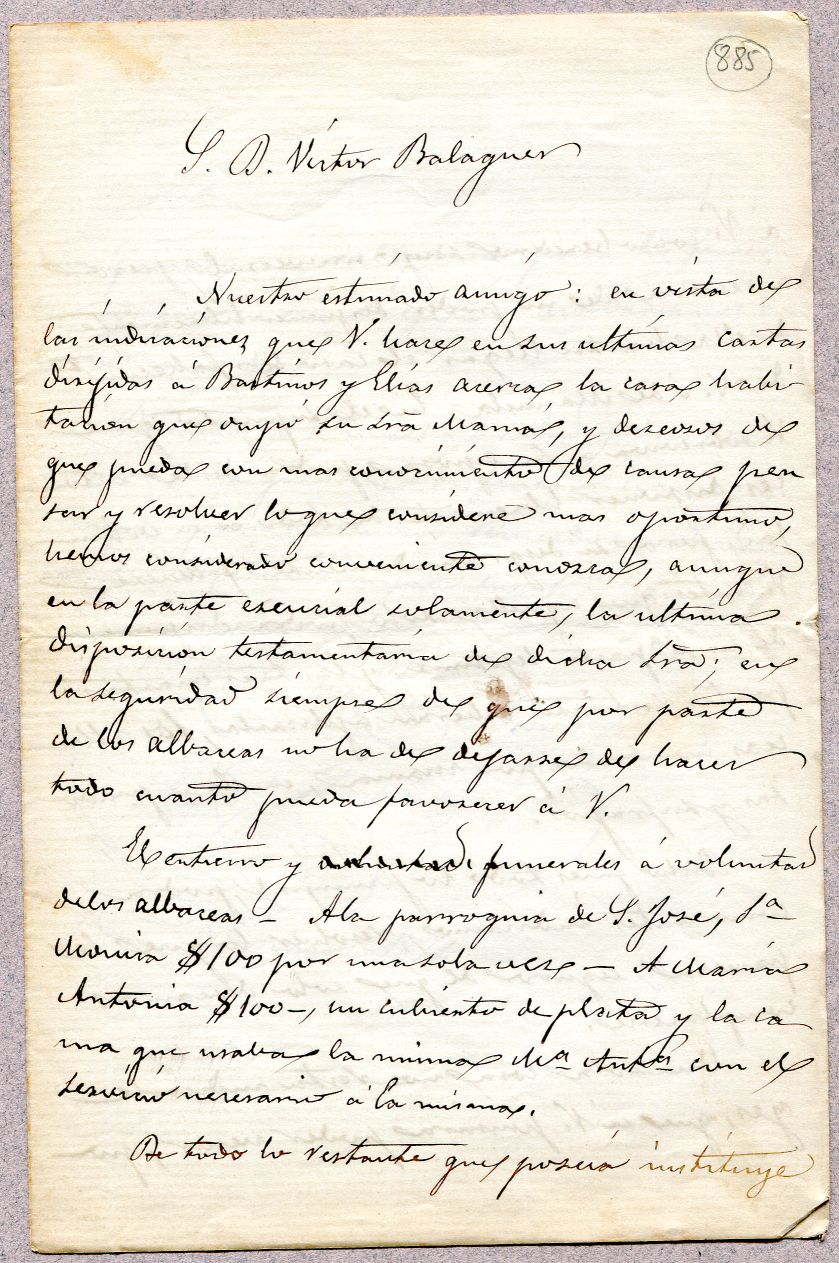 885
S. D. Víctor Balaguer
Nuestro estimado amigo: en vista de
las indicaciones que V. hace en sus ultimas cartas
dirijidas á Bastinos y Elías acerca la casa habi-
tacion que ocupó su Srā Mamá, y deseosos de
que pueda con mas conocimiento de causa pen
sar y resolver lo que considere mas oportuno,
hemos considerado conveniente conozca, aunque
en la parte esencial solamente, la ultima
disposicion testamentaria de dicha Srā; en
la seguridad siempre de que por parte
de los albaceas no ha de dejarse de hacer
todo cuanto pueda favorecer á V.
El entierro y funerales á voluntad
de los albaceas — A la parroquia de S. José, Sᵃ
Monica $100 por una sola vez — A María
Antonia $100 —, un cubierto de plata y la ca
ma que usaba la misma Mᵃ Antᵃ con el
servicio necesario á la misma.
De todo lo restante que poseia instituye